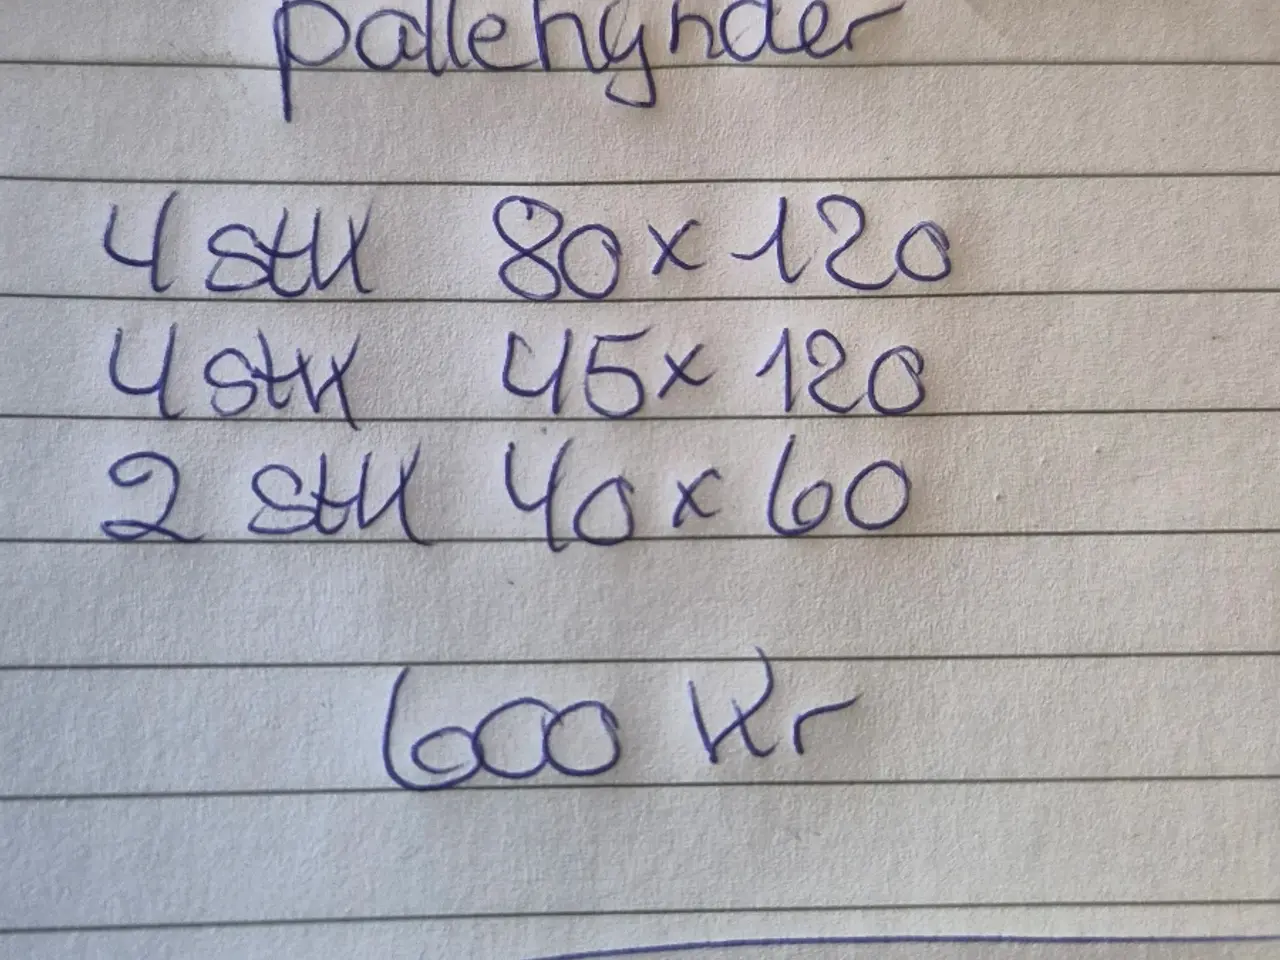 pallehynder
4 stk 80 x 120
4 stk 45 x 120
2 stk 40 x 60
600 kr